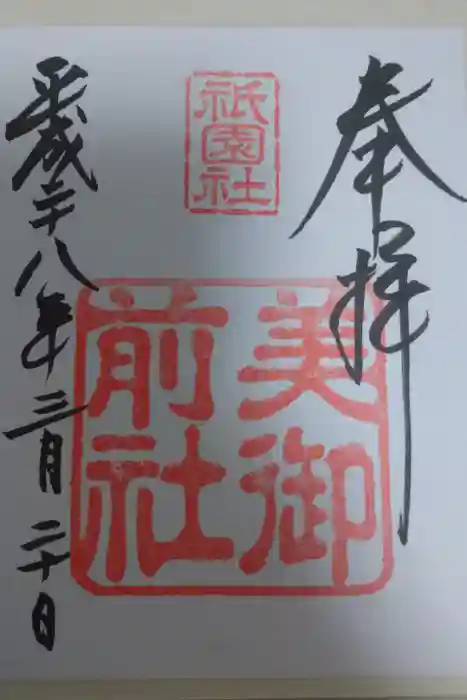 奉拝
祇園社
美御
前社
平成二十八年三月二十日